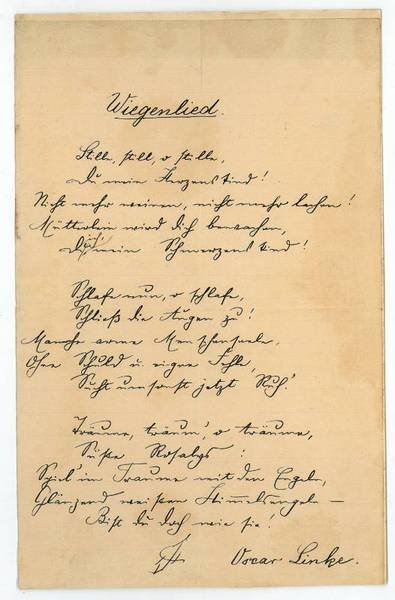 Wiegenlied.
Stille, still, o stille,
Du mein Herzenskind!
Nicht mehr weinen, nicht mehr lachen!
Mütterlein wird dich bewachen,
Dich, mein Schmerzenskind!
Schlafe nun, o schlafe,
Schließ die Augen zu!
Manche arme Menschenseele,
Ohne Schuld u. eigne Fehle,
Sucht umsonst jetzt Ruh'.
Träume, träum', o träume,
Süße
Spiel' im Traume mit den Engeln,
Glänzend weißen
Bist du doch wie sie!
Oscar Linke.